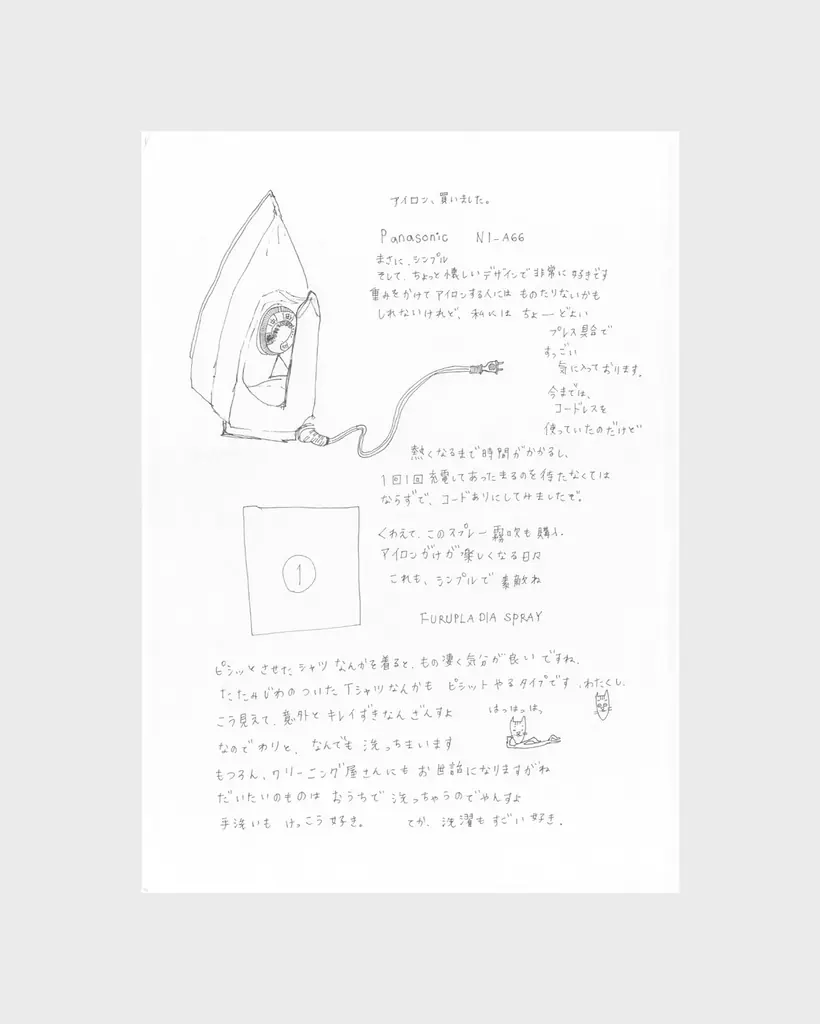 アイロン、買いました。
Panasonic NI-A66
まさに、シンプル
そして、ちょっと懐しいデザインで非常に好きです
重みをかけてアイロンする人には ものたりないかも
しれないけれど、私には ちょーどよい
プレス具合で
すっごい
気に入っております。
今までは、
コードレスを
使っていたのだけど
熱くなるまで時間がかかるし、
1回1回充電してあったまるのを待たなくては
ならずで、コードありにしてみましたぞ。
1
くわえて、このスプレー霧吹も購入。
アイロンがけが楽しくなる日々
これも、シンプルで素敵ね
FURUPLA DIA SPRAY
ピシッとさせたシャツなんかを着ると、もの凄く気分が良いですね、
たたみじわのついたTシャツなんかも ピシットやるタイプです、わたくし、
こう見えて、意外とキレイずきなんざんすよ
はっはっはっ
なのでわりと、なんでも洗っちまいます
もつろん、クリーニング屋さんにもお世話になりますがね
だいたいのものは おうちで洗っちゃうのでやんすよ
手洗いも けっこう好き。 てか、洗濯もすごい好き。